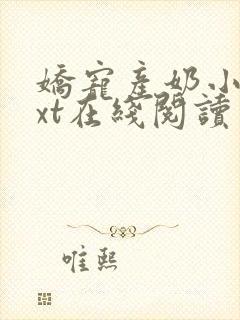 嬌寵產奶小
xt在綫閱讀
唯熙